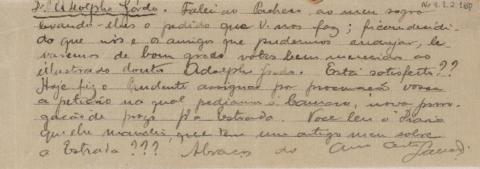 Dr. Adolpho Gordo. Falei ao Pacheco ao meu sogro
levando-lhes o pedido que V. nos faz; ficou decidi-
do que nós e os amigos que pudermos arranjar, le-
varemos de bom grado votos bem merecidos ao
illustrado doutor Adolpho Gordo. Está satisfeito??
Hoje fiz o Prudente assignar por procuração vossa
a petição na qual pedimos á Camara, nova proro-
gação de praso p/a estrada. Voce leu o Diario
que lhe mandei, que tem um artigo meu sobre
a Estrada??? Abraços do